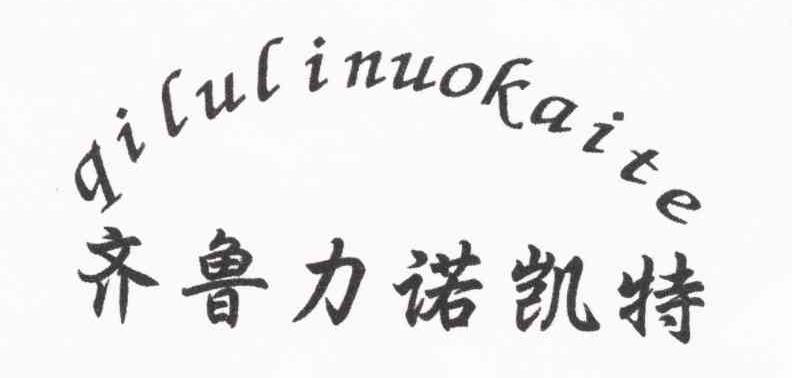 qilulinuokaite
齐鲁力诺凯特